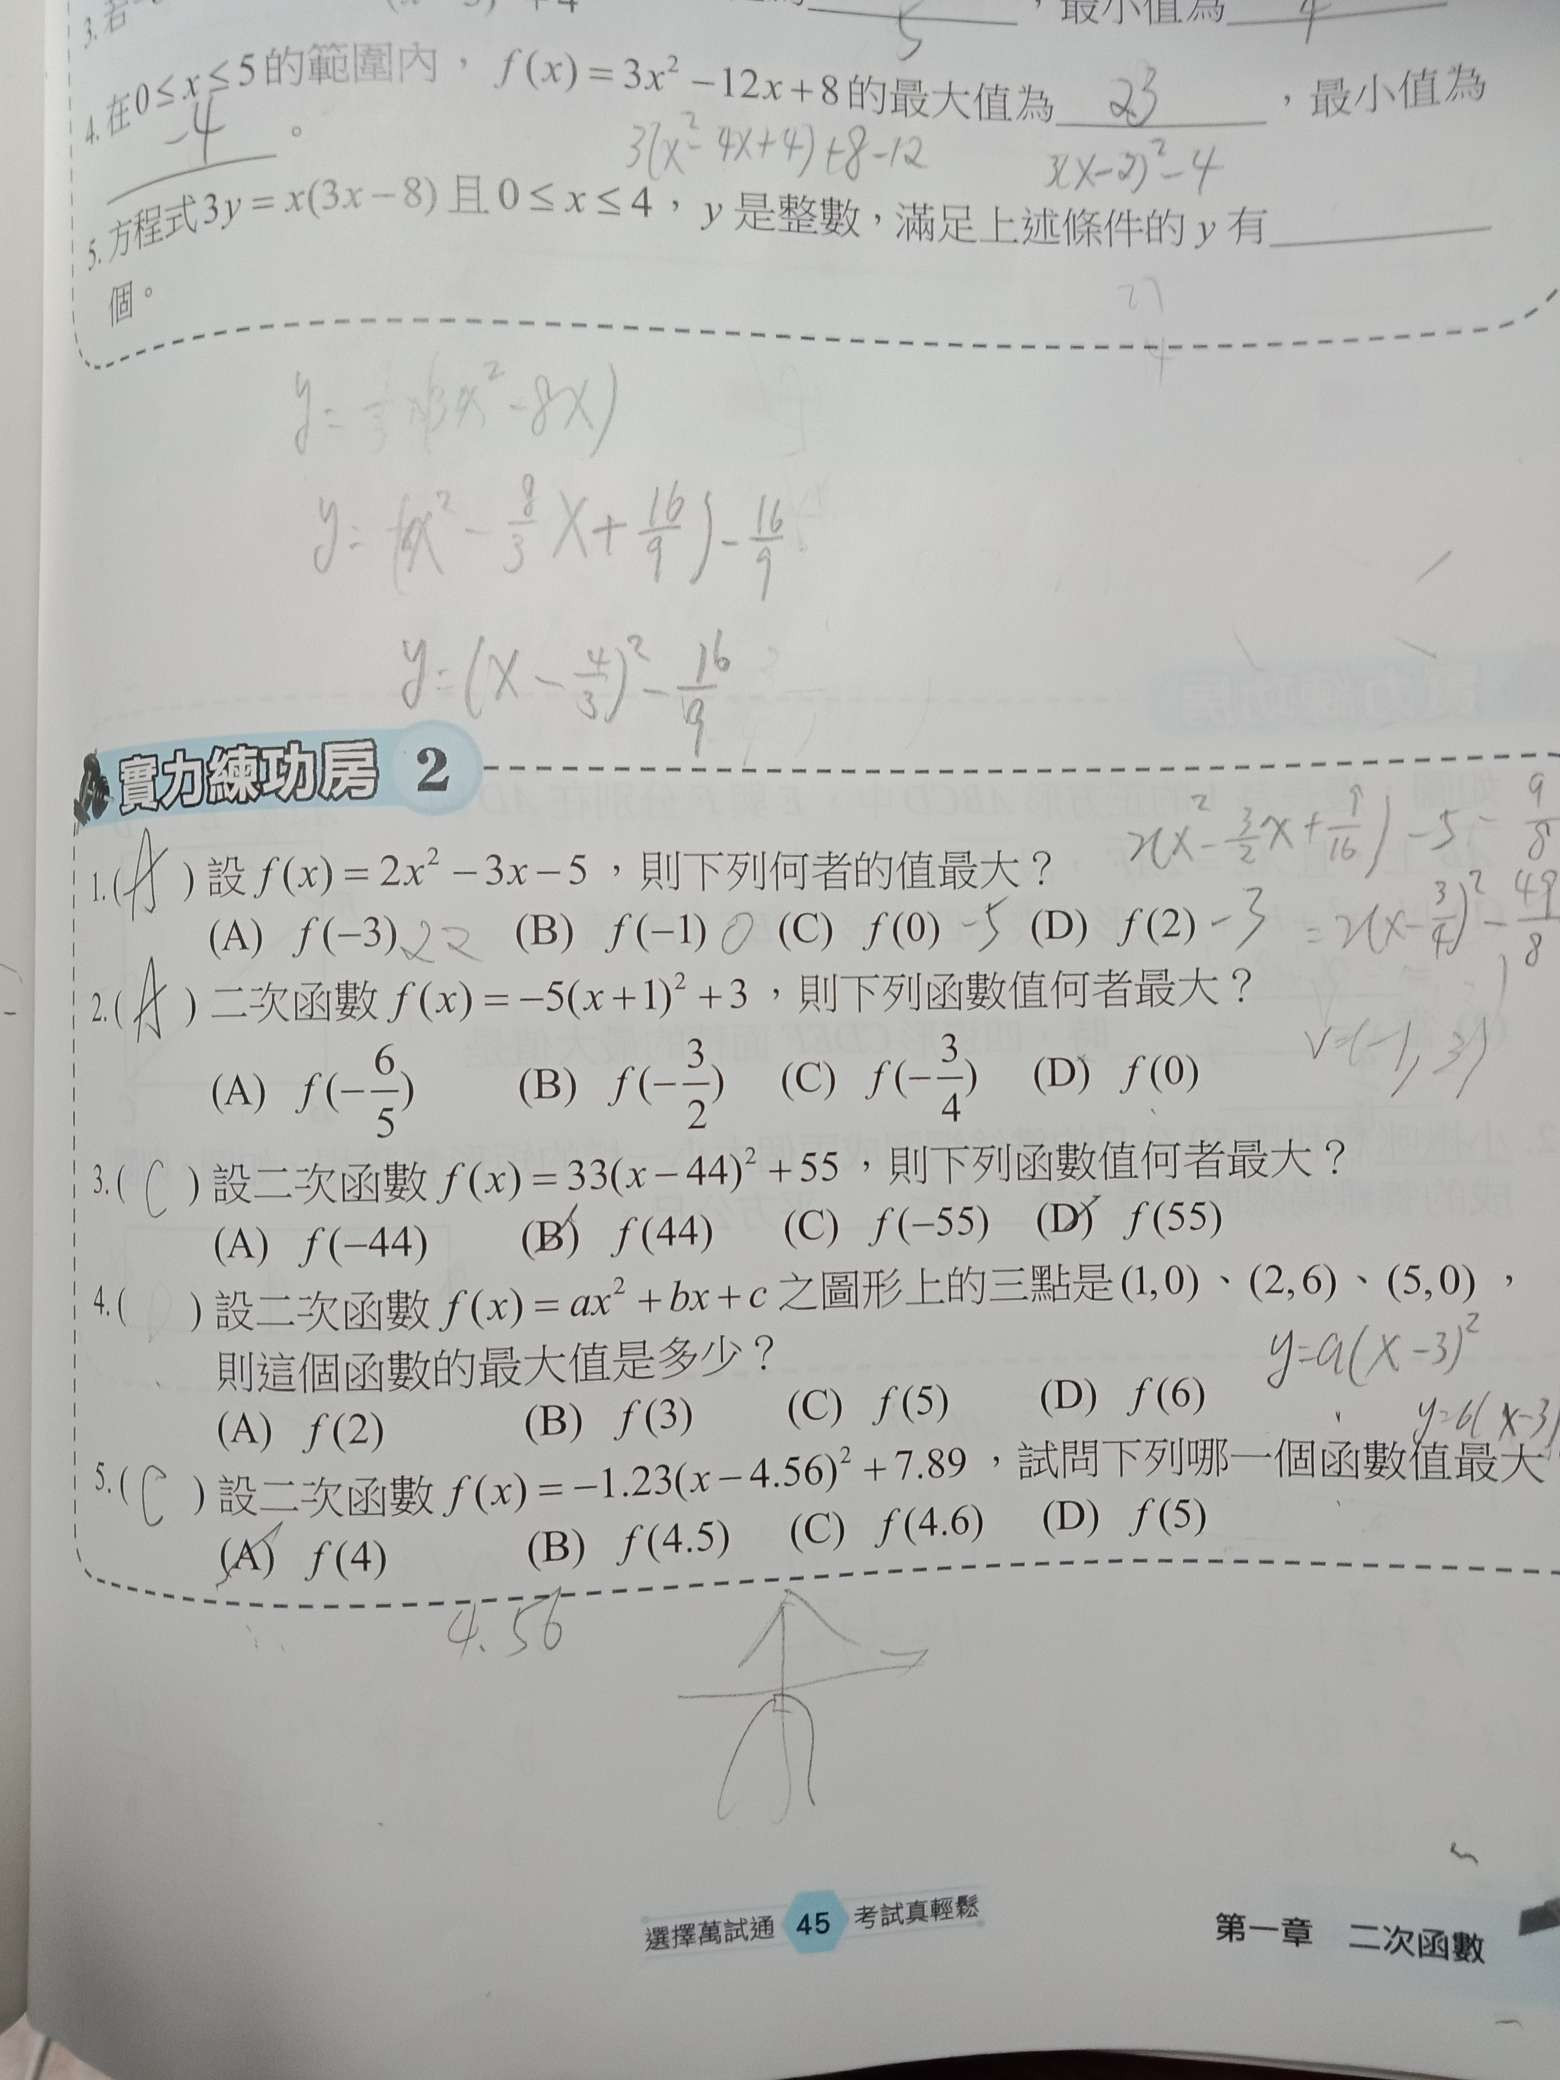 5，最小值為 4
4. 在0≤x≤5的範圍內，f(x)=3x²-12x+8的最大值為 23，最小值為
-4 。
3(x²-4x+4)+8-12 3(x-2)²-4
5. 方程式3y=x(3x-8)且0≤x≤4，y是整數，滿足上述條件的y有
個。
y=(x²-8/3x+16/9)-16/9
y=(x-4/3)²-16/9
實力練功房 2
2(x²-3/2x+9/16)-5-9/8
1.(A)設f(x)=2x²-3x-5，則下列何者的值最大？
(A) f(-3) 22 (B) f(-1) 0 (C) f(0) -5 (D) f(2) -3 =2(x-3/4)²-49/8
2.(A)二次函數f(x)=-5(x+1)²+3，則下列函數值何者最大？
V=(-1, 3)
(A) f(-6/5) (B) f(-3/2) (C) f(-3/4) (D) f(0)
3.(C)設二次函數f(x)=33(x-44)²+55，則下列函數值何者最大？
(A) f(-44) (B) f(44) (C) f(-55) (D) f(55)
4.( )設二次函數f(x)=ax²+bx+c之圖形上的三點是(1,0)、(2,6)、(5,0)，
則這個函數的最大值是多少？ y=a(x-3)²
(A) f(2) (B) f(3) (C) f(5) (D) f(6)
y=6(x-3)
5.(C)設二次函數f(x)=-1.23(x-4.56)²+7.89，試問下列哪一個函數值最大
(A) f(4) (B) f(4.5) (C) f(4.6) (D) f(5)
4.56
選擇萬試通 45 考試真輕鬆
第一章 二次函數